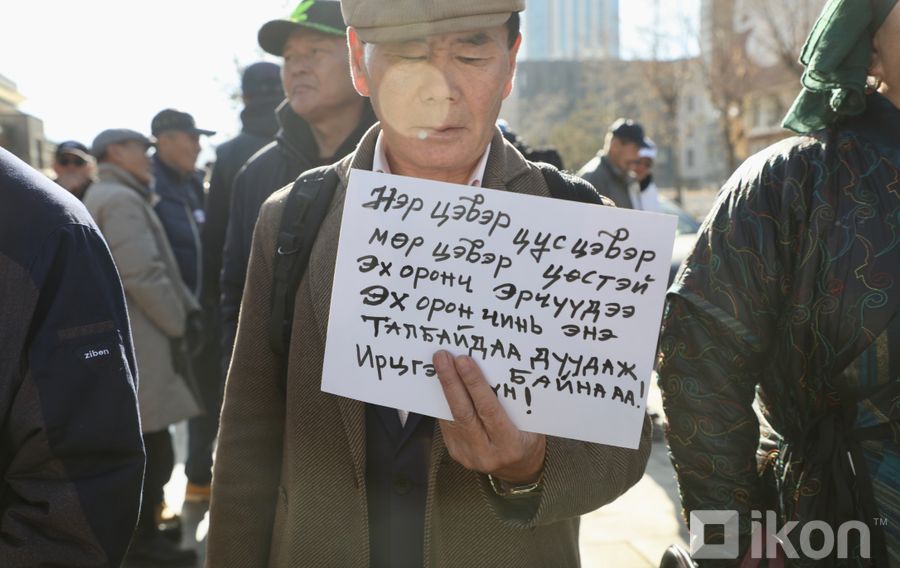 Нэр цэвэр цус цэвэр
мөр цэвэр цөстэй
Эх оронч эрчүүдээ
Эх орон чинь энэ
Талбайдаа дуудаж
байнаа!
ziben
ikon™